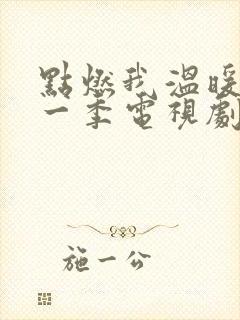 點燃我溫暖
一季電視劇
施一公